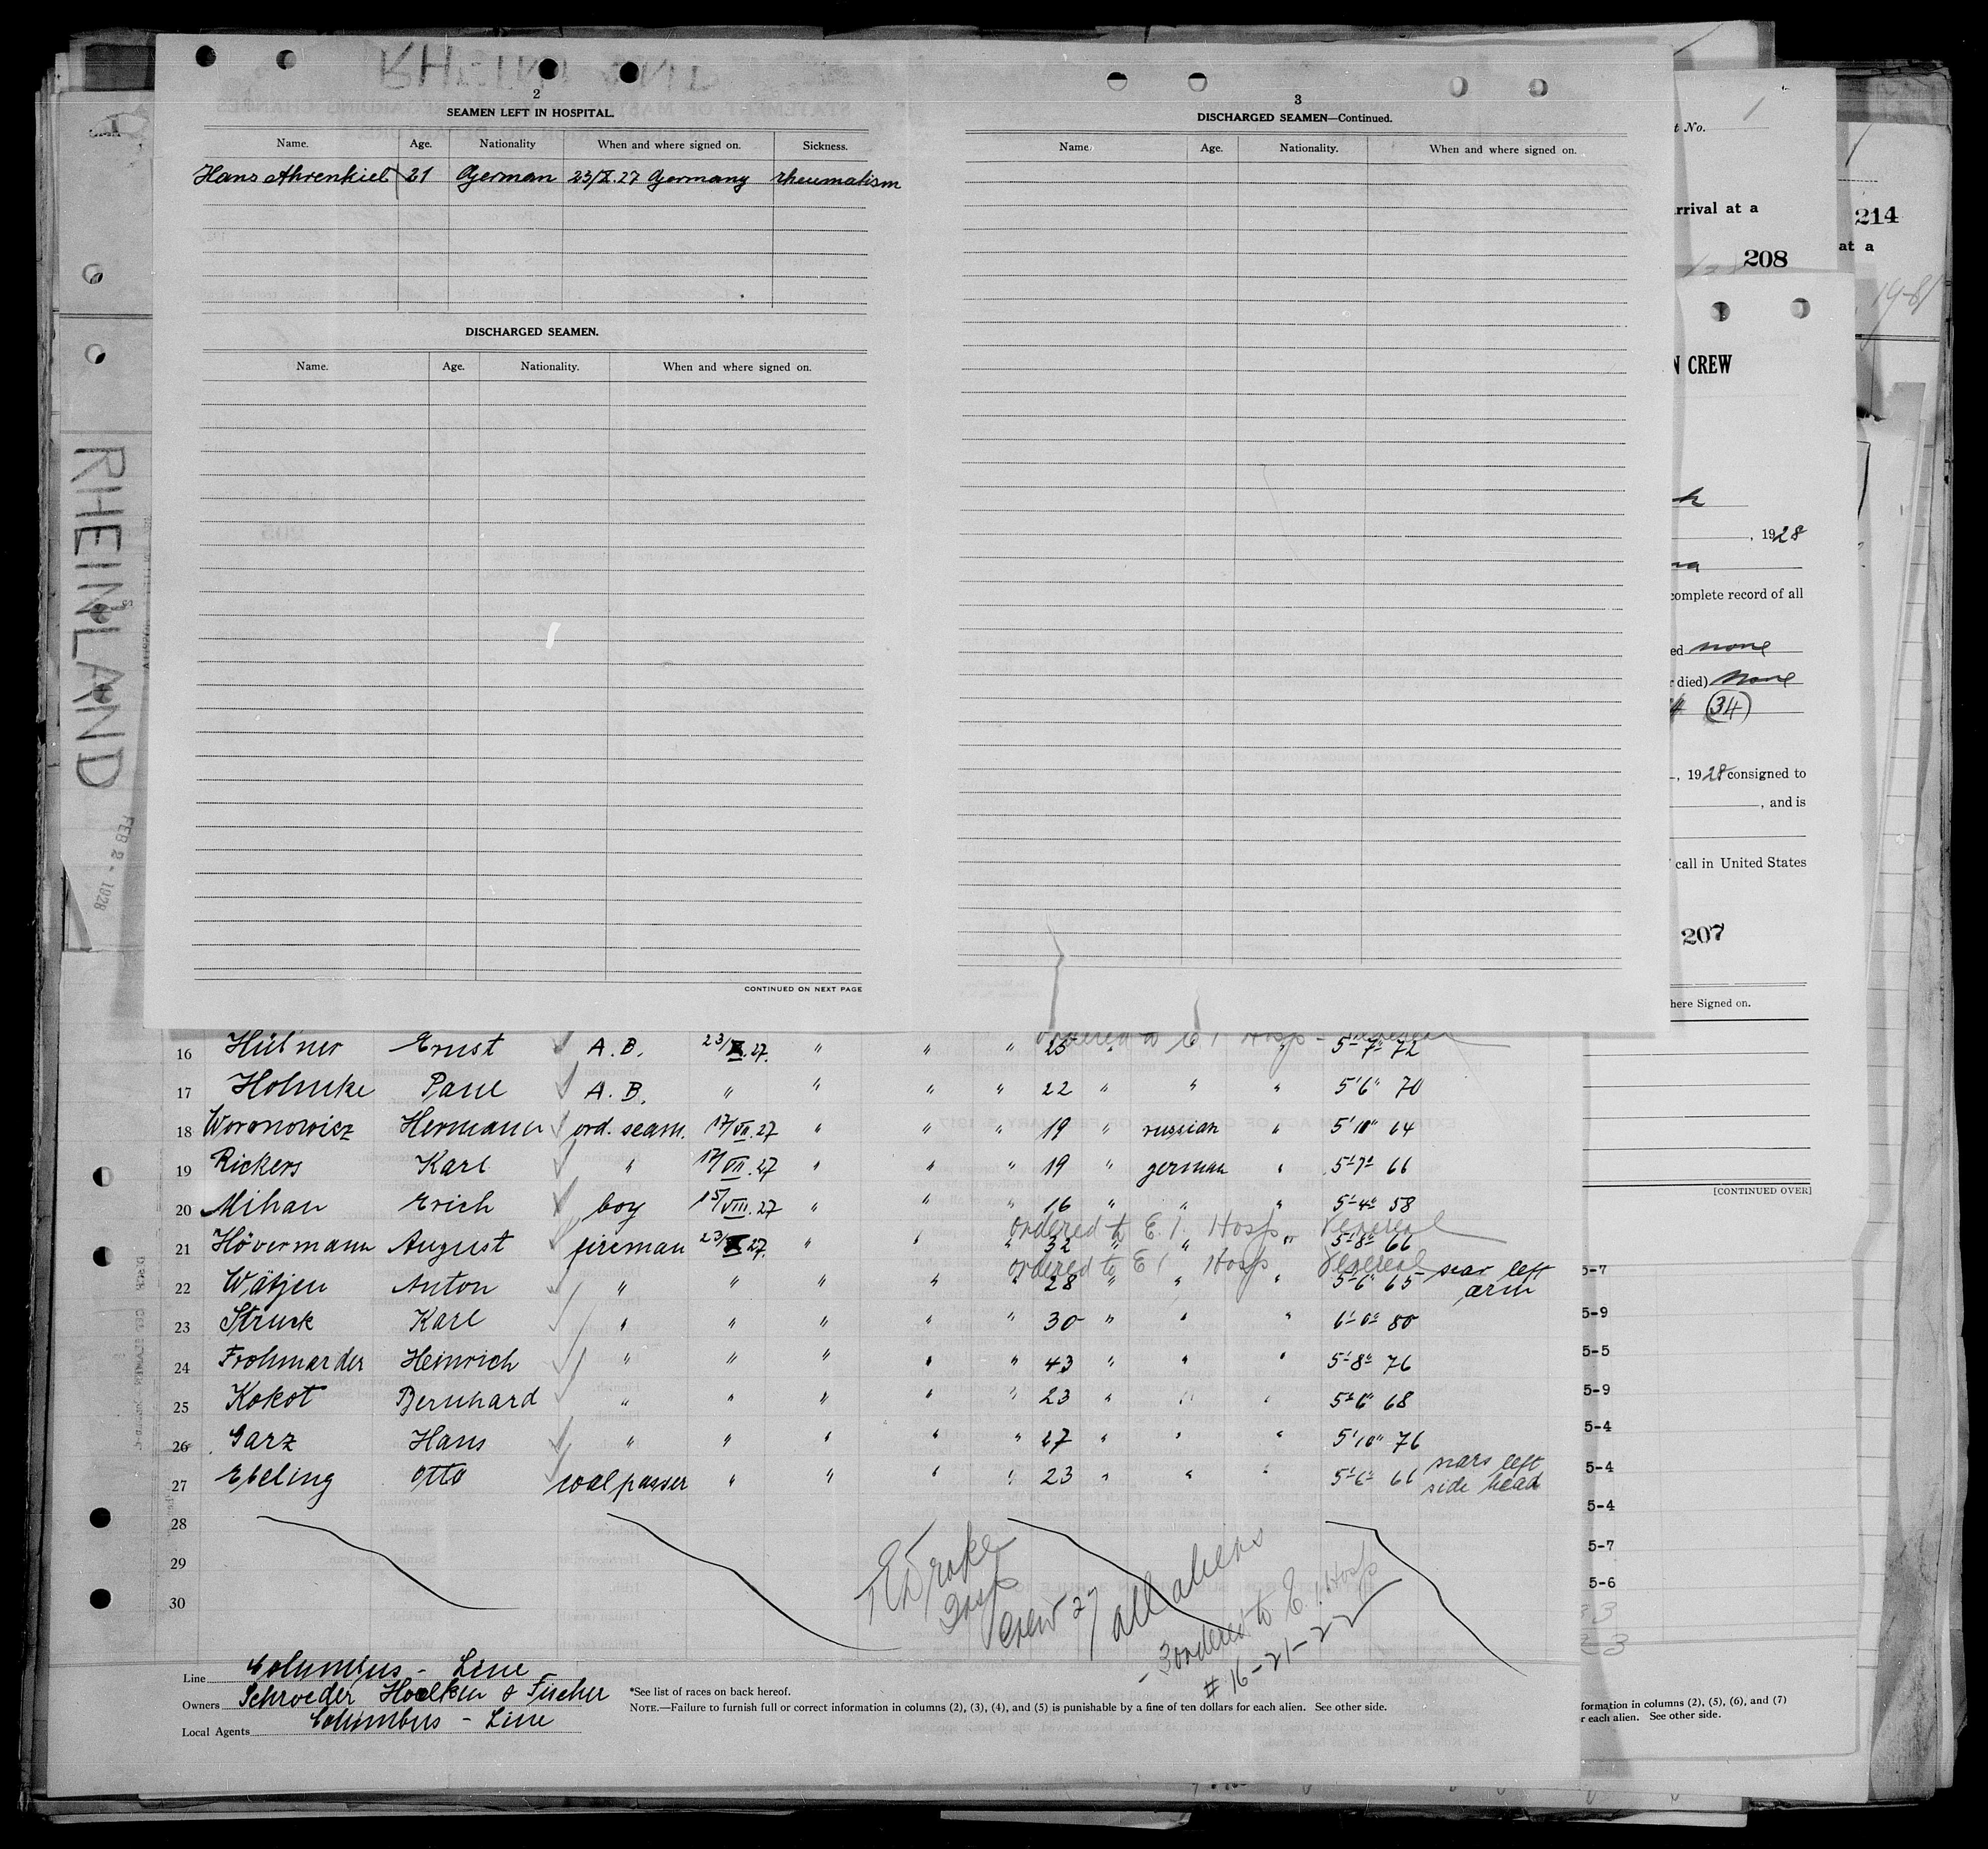 RHEINLAND
FEB 2 - 1928
2
SEAMEN LEFT IN HOSPITAL.
Name. Age. Nationality When and where signed on. Sickness.
Hans Ahrenkiel 21 German 23/X.27 Germany rheumatism
DISCHARGED SEAMEN.
Name. Age. Nationality. When and where signed on.
CONTINUED ON NEXT PAGE
3
DISCHARGED SEAMEN—Continued.
Name Age. Nationality. When and where signed on.
t No. 1
rrival at a
208
214
at a
19-81
N CREW
, 1928
complete record of all
ed none
r died) None
34
, 1928 consigned to
, and is
call in United States
207
here Signed on.
[CONTINUED OVER]
ordered to E I Hosp - Venereal
16 Hübner Ernst A.B. 23/X.27. " " " 25 " " 5'7" 72
17 Hohnke Paul A.B. " " " " 22 " " " 5'6" 70
18 Woronowicz Hermann ord. seam. 17/VII.27 " " " 19 " russian " 5'10" 64
19 Rickers Karl " 17/VII.27 " " " 19 " german " 5'7" 66
20 Mihan Erich boy 15/VIII.27 " " " 16 " " " 5'4" 58
ordered to E.I. Hosp Venereal
21 Hövermann August fireman 23/X.27. " " " 32 " " " 5'8" 66
ordered to E I Hosp Venereal
22 Wätjen Anton " " " " " 28 " " " 5'6" 65 scar left arm
23 Struck Karl " " " " " 30 " " " 6'0" 80
24 Frohmarder Heinrich " " " " " 43 " " " 5'8" 76
25 Kokot Bernhard " " " " " 23 " " " 5'6" 68
26 Garz Hans " " " " " 27 " " " 5'10" 76
27 Ebeling Otto coalpasser " " " " 23 " " " 5'6" 66 scars left side head
28
29
30
5-7
5-9
5-5
5-9
5-4
5-4
5-4
5-7
5-6
Drake
Insp
Crew 27 all aliens
- 3 ordered to E.I. Hosp
# 16-21-22
Line Columbus - Line
Owners Schroeder Hoelken & Fischer
Local Agents Columbus - Line
*See list of races on back hereof.
NOTE.—Failure to furnish full or correct information in columns (2), (3), (4), and (5) is punishable by a fine of ten dollars for each alien. See other side.
formation in columns (2), (5), (6), and (7)
r each alien. See other side.